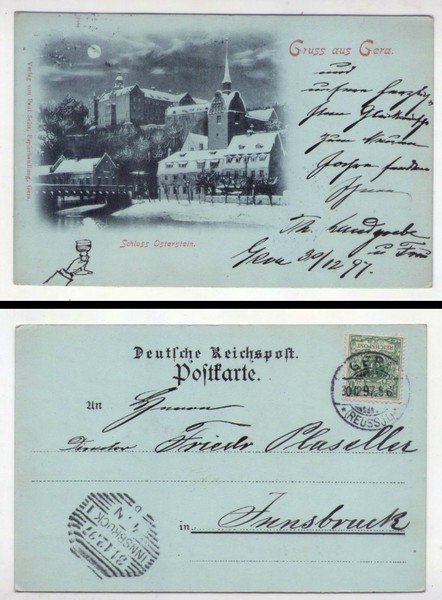 Gruss aus Gera.
und
unsern herzlich
sten Glückwunsch
zum neuen
Jahre senden
Ihnen
Th. Landgrebe
u Frau
Gera 30/12 97.
Schloss Osterstein.
Deutsche Reichspost.
Postkarte.
An Herrn
Director Friedr Plaseller
in Innsbruck
GERA
30.12.97. 5-6
(REUSS)
INNSBRUCK 1
31.12.97